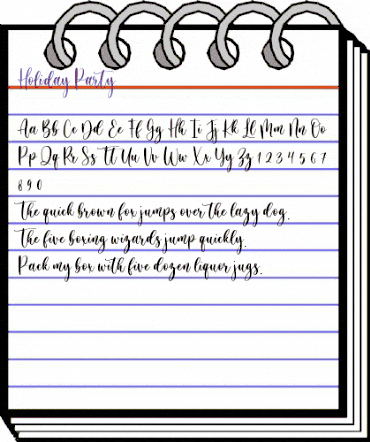 Holiday Party
Aa Bb Cc Dd Ee Ff Gg Hh Ii Jj Kk Ll Mm Nn Oo
Pp Qq Rr Ss Tt Uu Vv Ww Xx Yy Zz 1 2 3 4 5 6 7
8 9 0
The quick brown fox jumps over the lazy dog.
The five boxing wizards jump quickly.
Pack my box with five dozen liquor jugs.